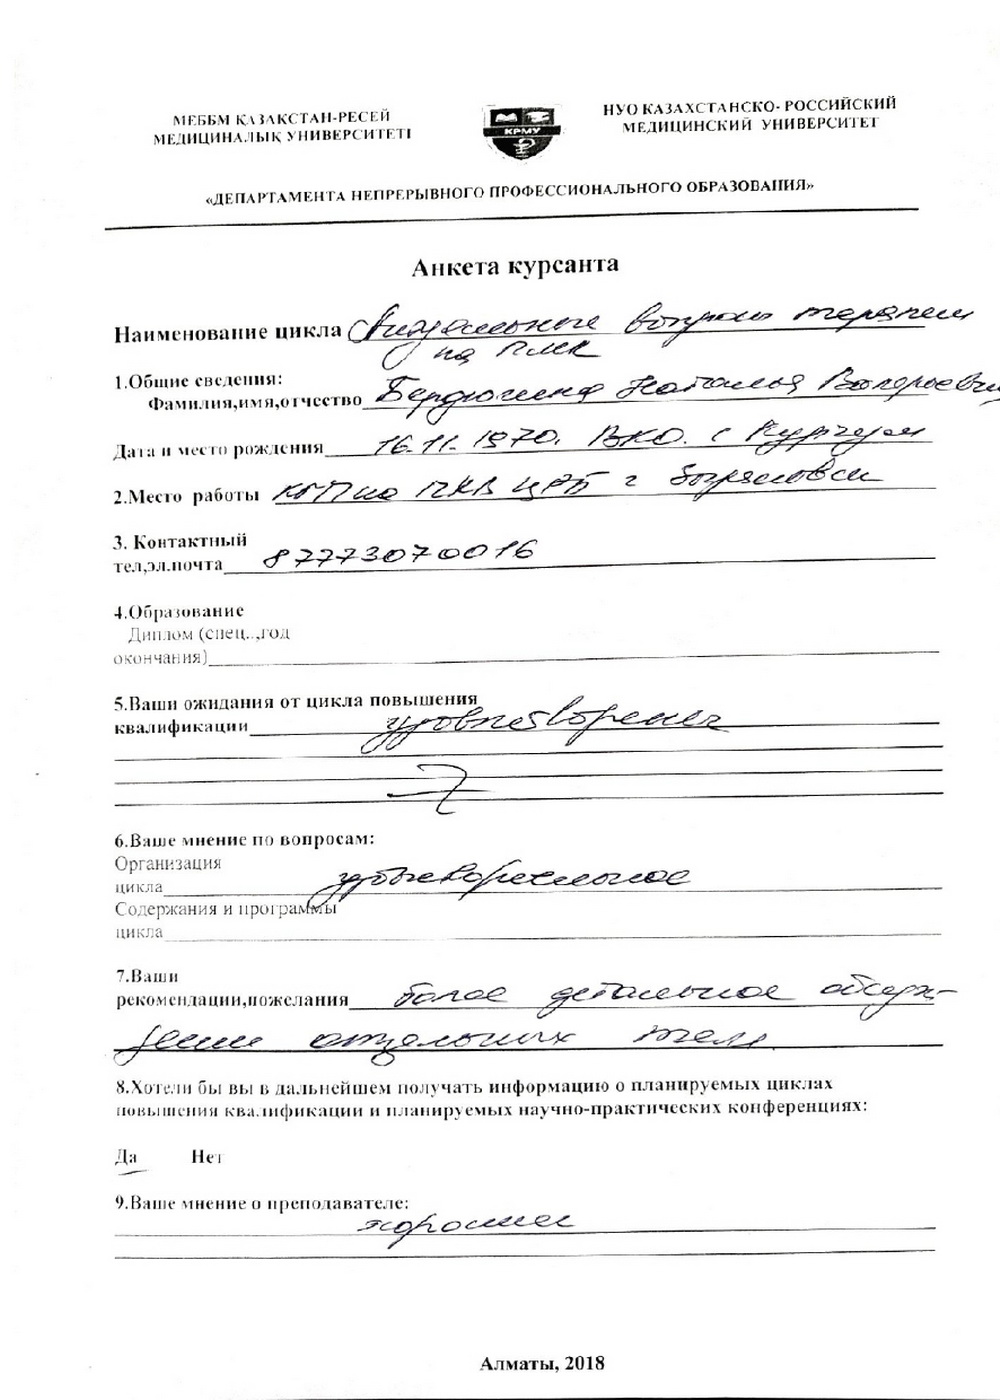 МЕББМ ҚАЗАҚСТАН-РЕСЕЙ
МЕДИЦИНАЛЫҚ УНИВЕРСИТЕТІ
КРМУ
НУО КАЗАХСТАНСКО- РОССИЙСКИЙ
МЕДИЦИНСКИЙ УНИВЕРСИТЕТ
«ДЕПАРТАМЕНТА НЕПРЕРЫВНОГО ПРОФЕССИОНАЛЬНОГО ОБРАЗОВАНИЯ»
Анкета курсанта
Наименование цикла Актуальные вопросы терапии
на ПМК
1.Общие сведения:
Фамилия,имя,отчество Бердюгина Наталья Валерьевна
Дата и место рождения 16.11.1970. ВКО. с Курчум
2.Место работы на ПХВ ЦРБ г
3. Контактный
тел,эл.почта 87773070016
4.Образование
Диплом (спец..,год
окончания)
5.Ваши ожидания от цикла повышения
квалификации удовлетворены
6.Ваше мнение по вопросам:
Организация
цикла удовлетворительное
Содержания и программы
цикла
7.Ваши
рекомендации,пожелания более детальное обсуж-
дении отдельных тем.
8.Хотели бы вы в дальнейшем получать информацию о планируемых циклах
повышения квалификации и планируемых научно-практических конференциях:
Да Нет
9.Ваше мнение о преподавателе:
хорошее
Алматы, 2018